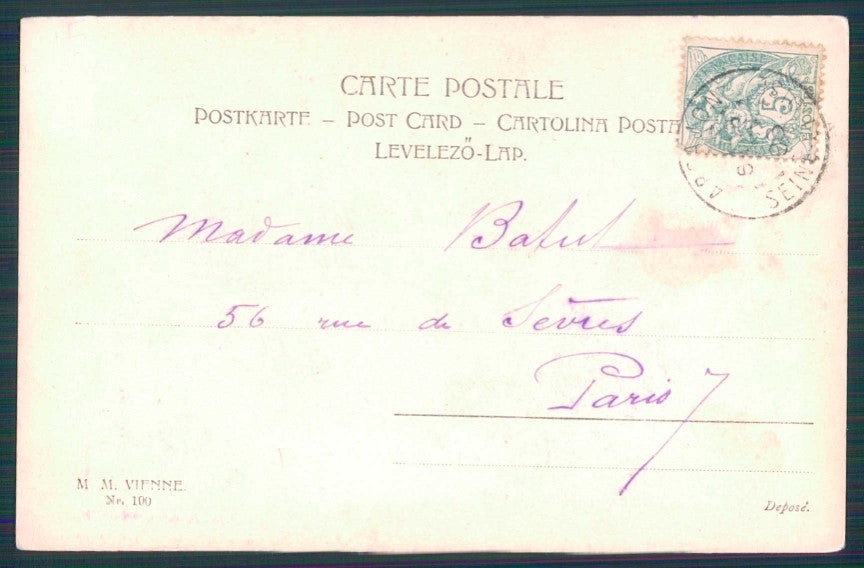 CARTE POSTALE
POSTKARTE – POST CARD – CARTOLINA POSTA
LEVELEZŐ-LAP.
SEINE
Madame Batut
56 rue de Sèvres
Paris 7
M. M. VIENNE.
Nr. 100
Deposé.